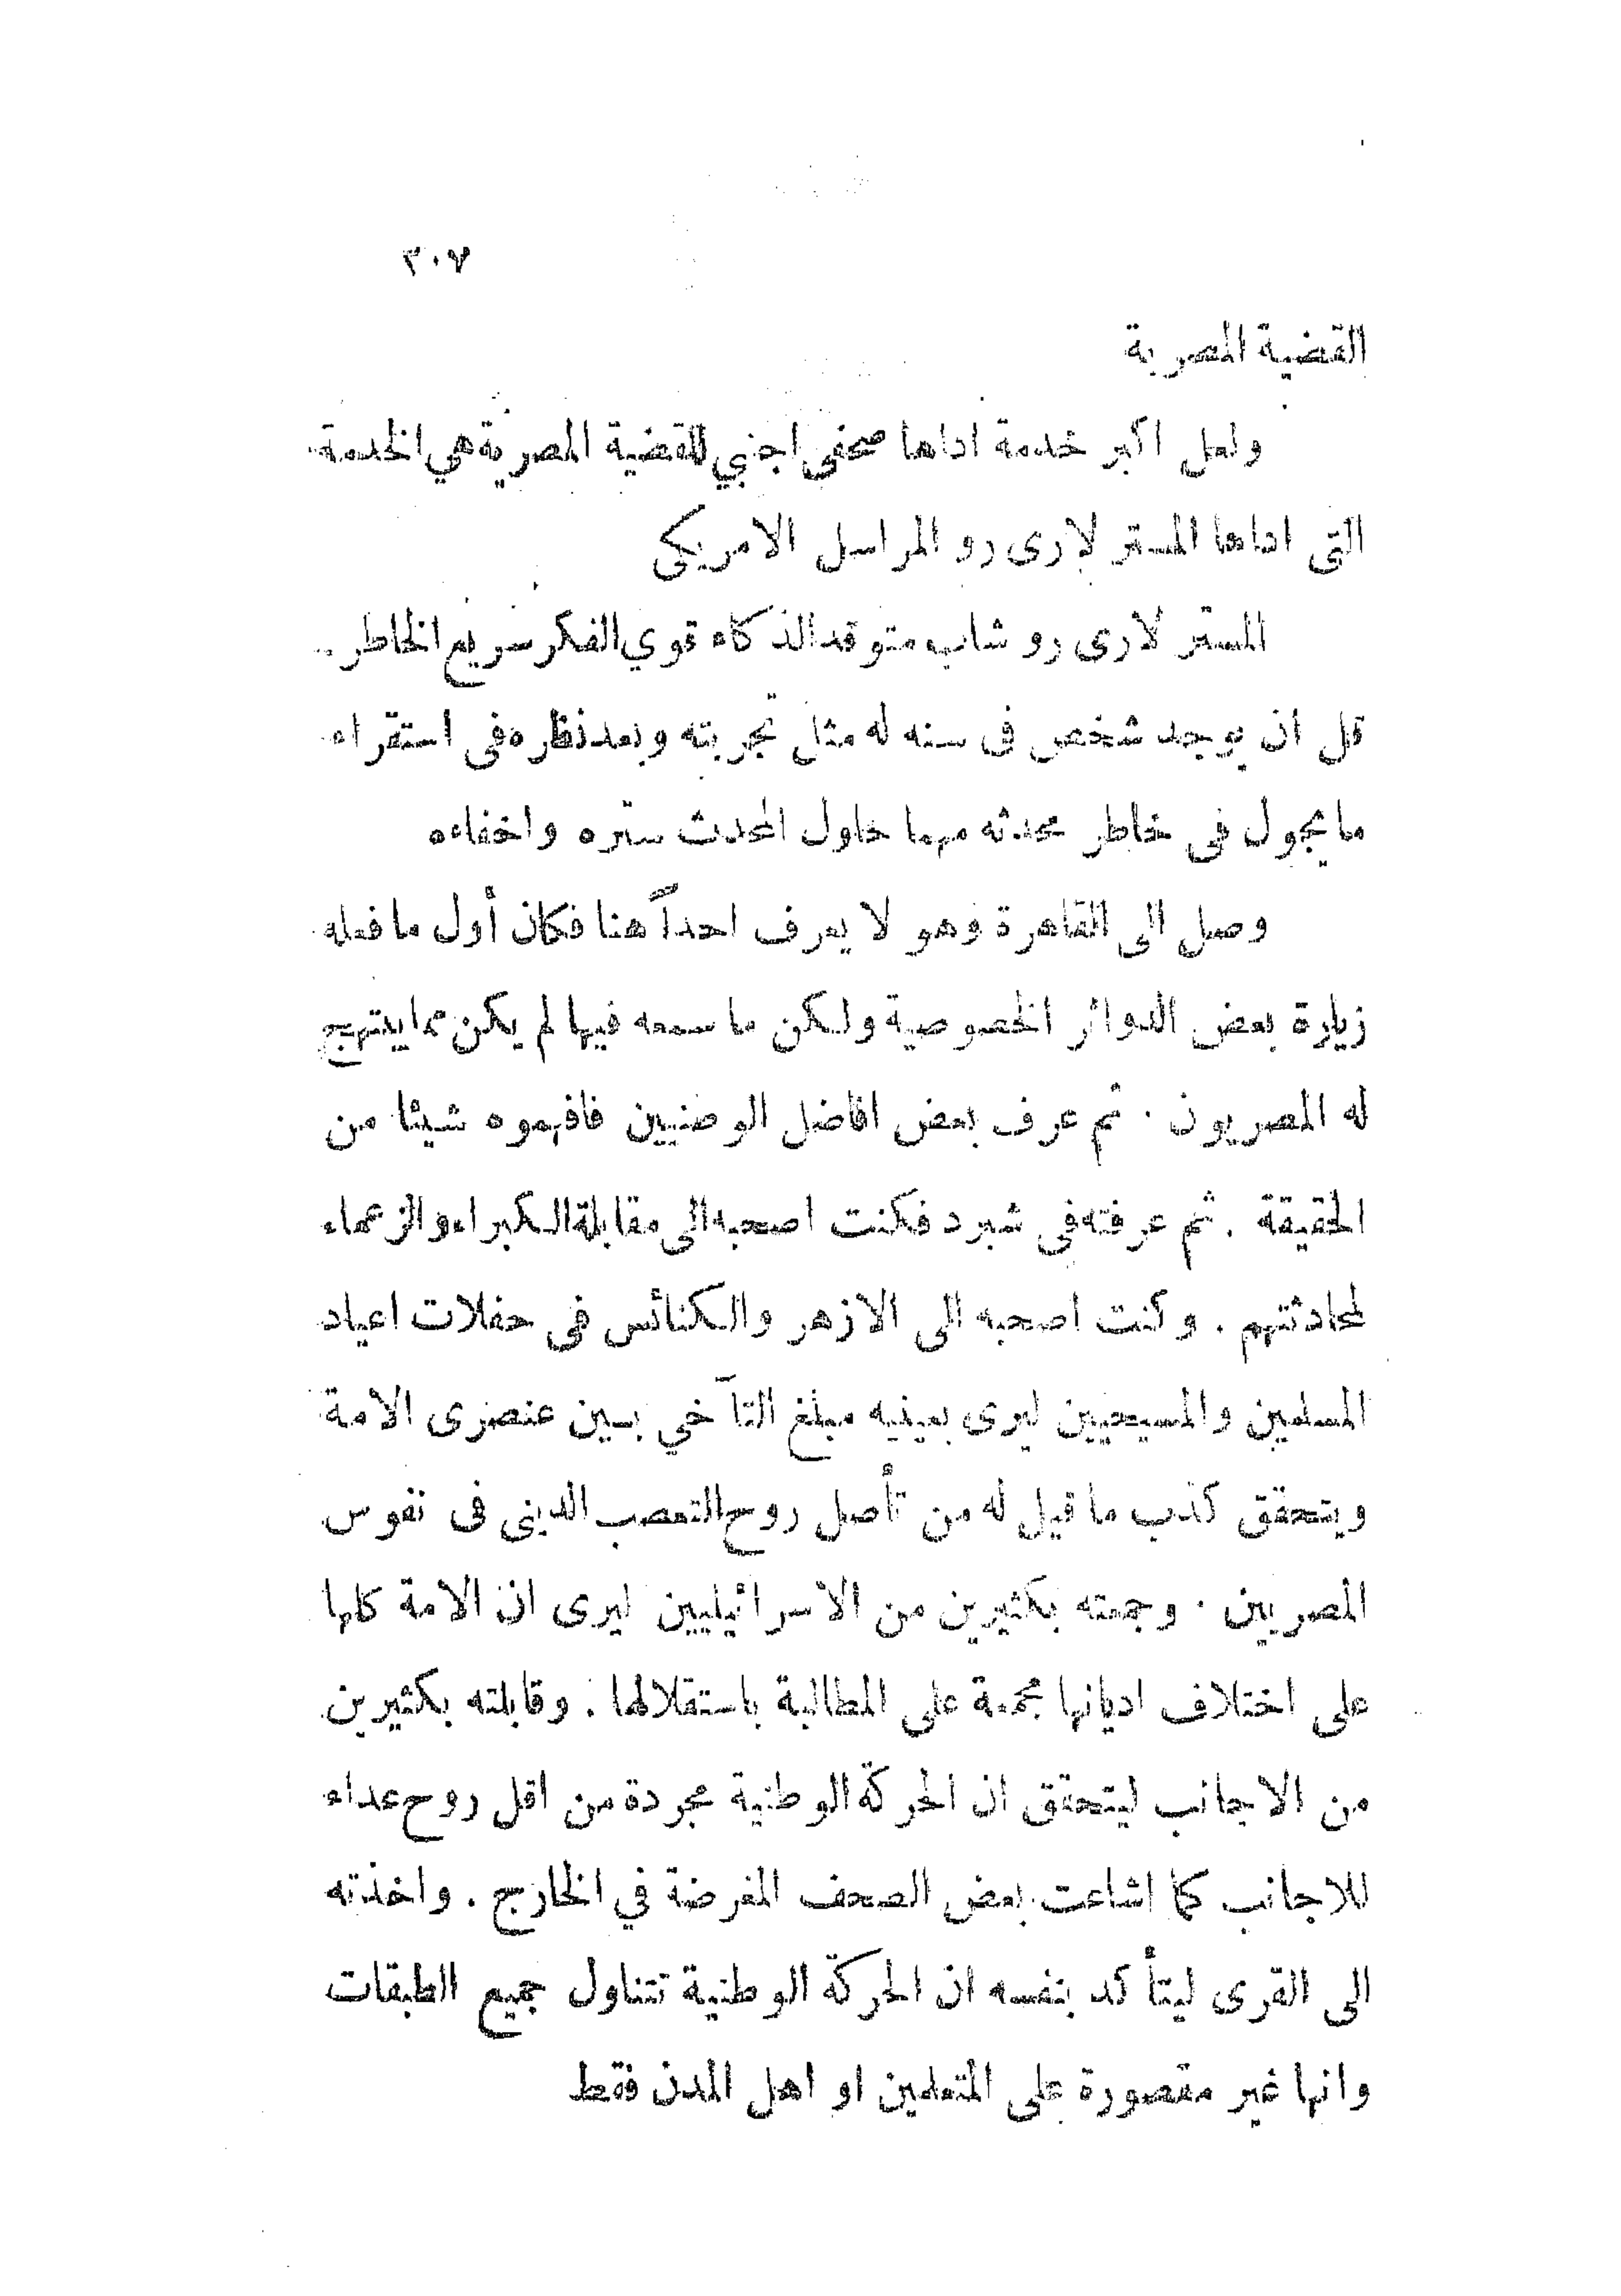 ٣٠٧
القضية المصرية
ولعل اكبر خدمة اداها صحفى اجنبي للقضية المصرية هي الخدمة
التى اداها المستر لارى رو المراسل الامريكى
المستر لارى رو شاب متوقد الذكاء قوي الفكر سريع الخاطر .
قل ان يوجد شخص فى سنه له مثل تجربته وبعد نظره فى استقراء
ما يجول فى خاطر محدثه مهما حاول المحدث ستره واخفاءه
وصل الى القاهرة وهو لا يعرف احداً هنا فكان أول ما فعله
زيارة بعض الدوائر الخصوصية ولكن ما سمعه فيها لم يكن مما يبتهج
له المصريون . ثم عرف بعض افاضل الوطنيين فافهموه شيئا من
الحقيقة . ثم عرفته فى شبرد فكنت اصحبه الى مقابلة الكبراء والزعماء
لمحادثتهم . وكنت اصحبه الى الازهر والكنائس فى حفلات اعياد
المسلمين والمسيحيين ليرى بعينيه مبلغ التآخي بين عنصرى الامة
ويتحقق كذب ما قيل له من تأصل روح التعصب الدينى فى نفوس
المصريين . وجمعته بكثيرين من الاسرائيليين ليرى ان الامة كلها
على اختلاف اديانها مجمعة على المطالبة باستقلالها . وقابلته بكثيرين
من الاجانب ليتحقق ان الحركة الوطنية مجردة من اقل روح عداء
للاجانب كما اشاعت بعض الصحف المغرضة في الخارج . واخذته
الى القرى ليتأكد بنفسه ان الحركة الوطنية تتناول جميع الطبقات
وانها غير مقصورة على المتعلمين او اهل المدن فقط